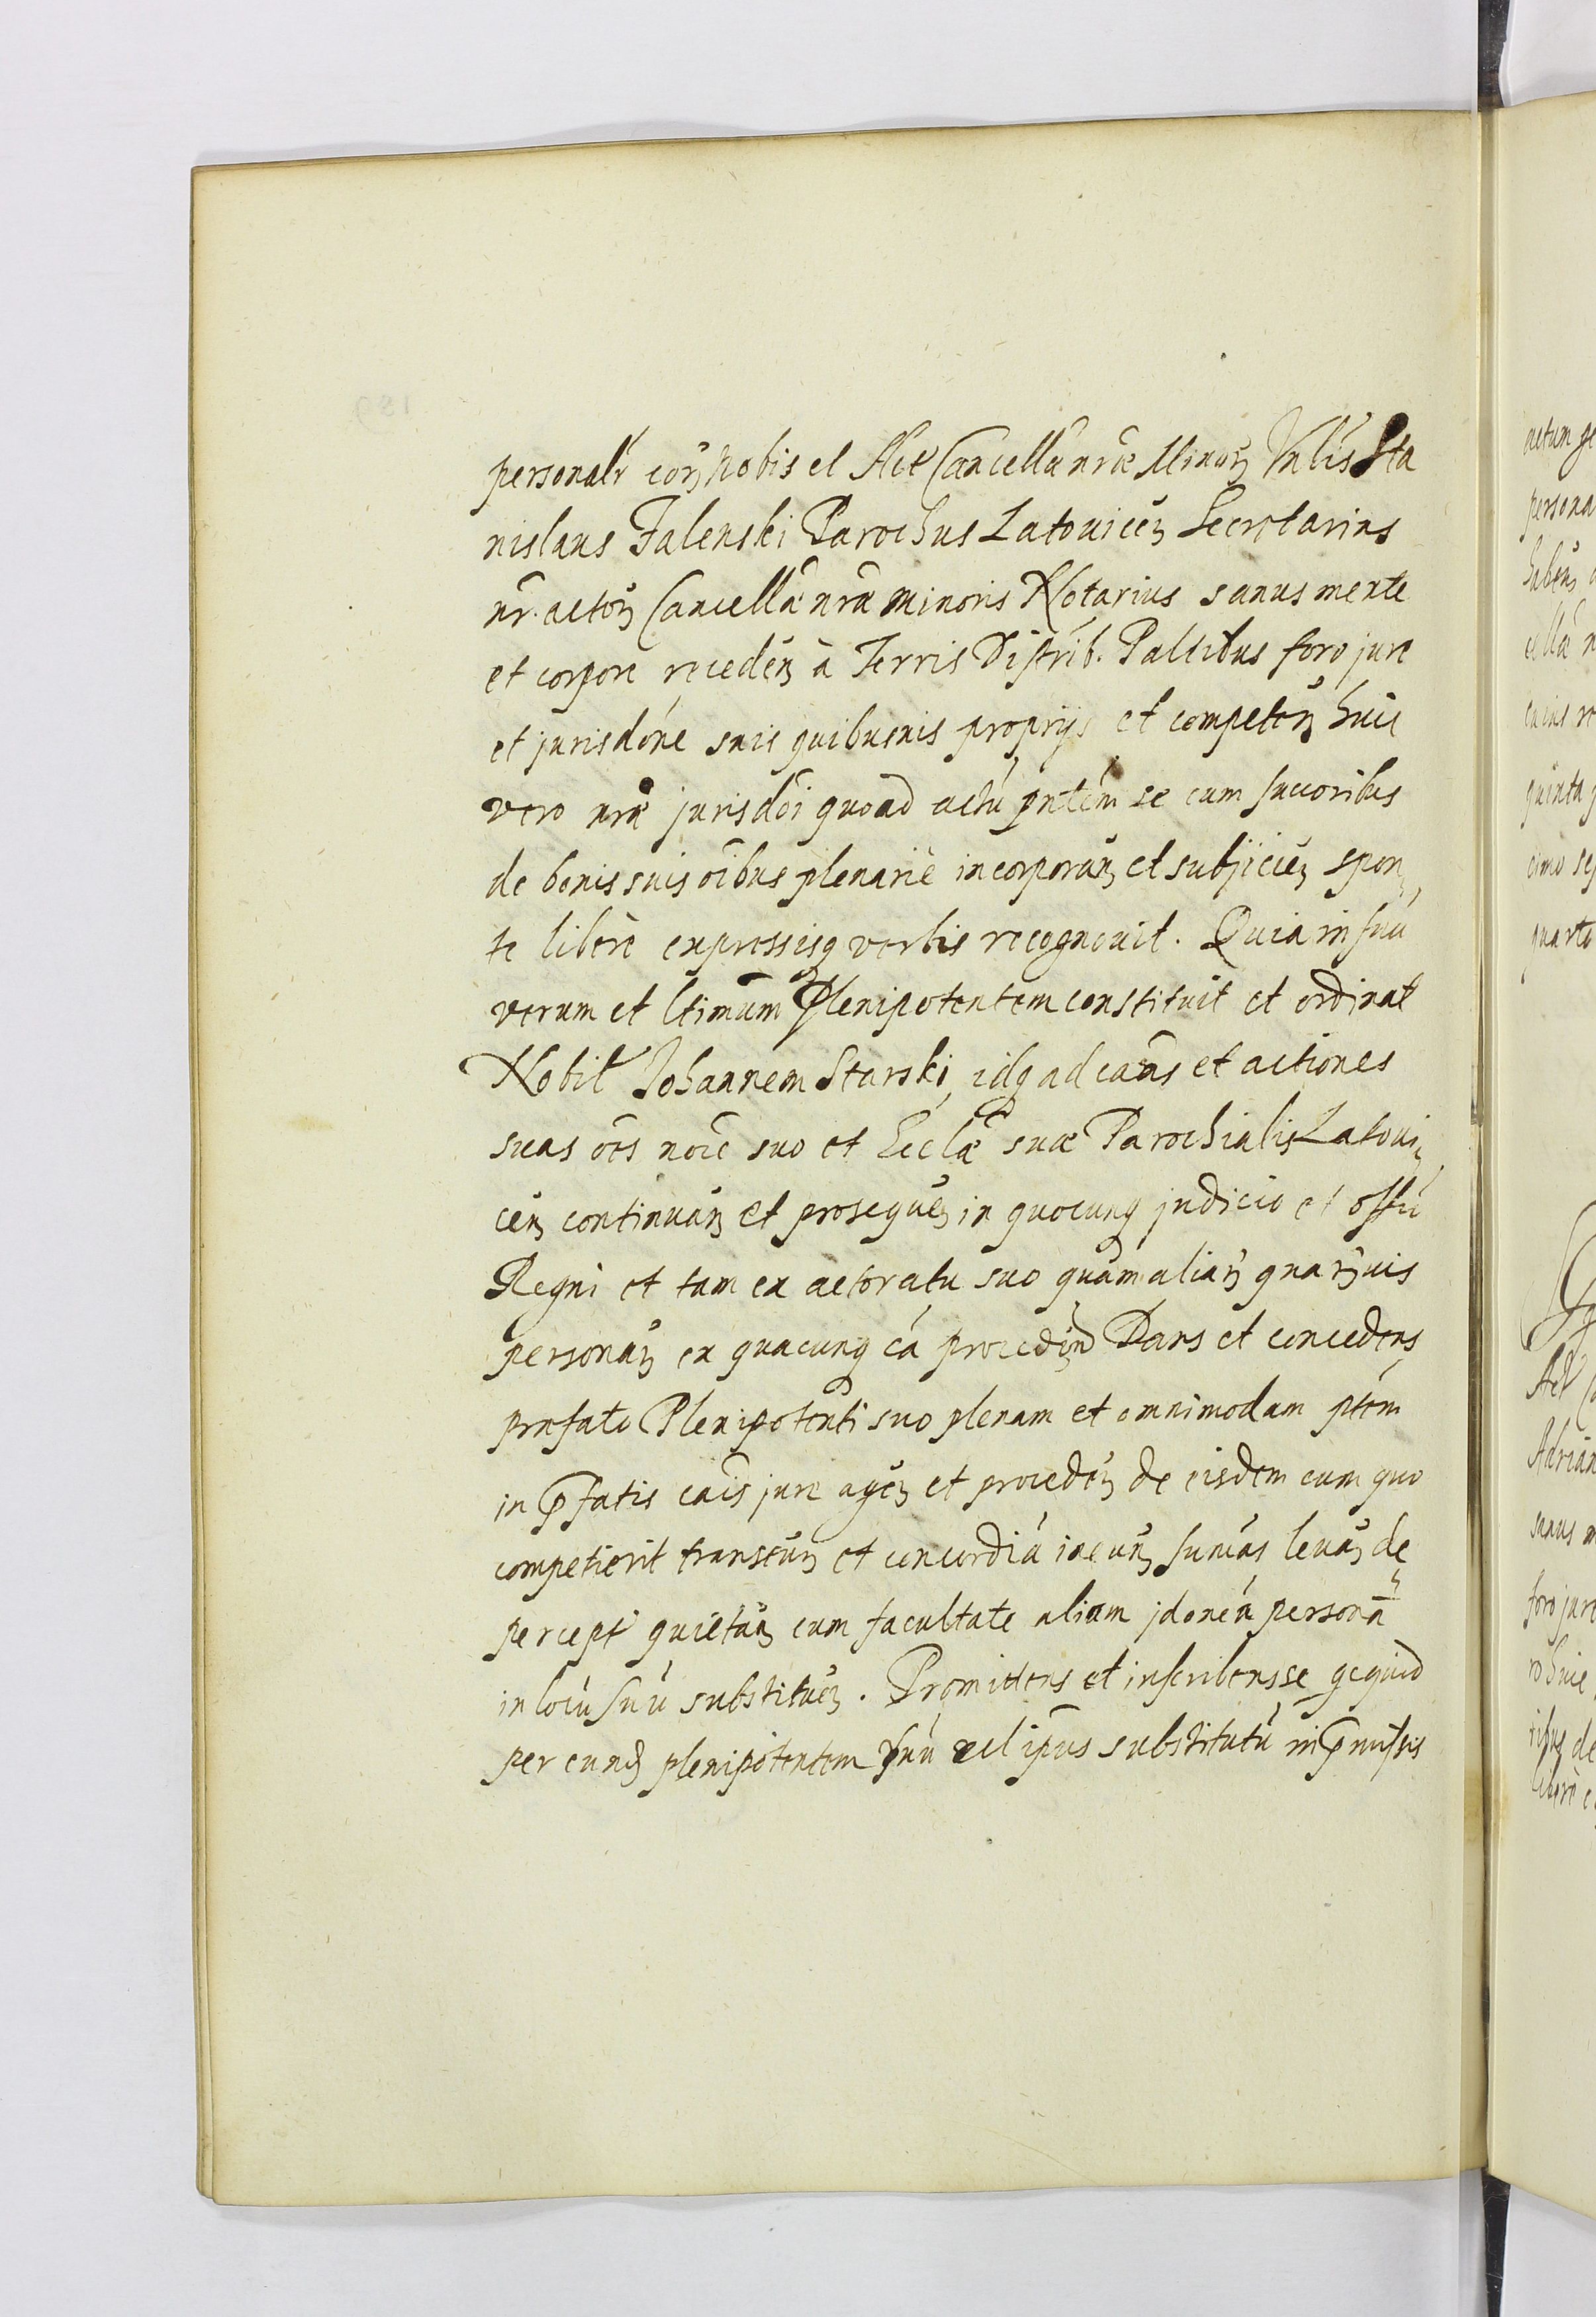 personalr̃ corʒ Nobis et Act Cancellã nrãe Minorʒ Vnlis Sta
nislaus Falenski Parochus Latovicen̄ Secretarius
nr̃. actorʒ Cancellã nrã Minoris Notarius sanus mente
et corpore receden̄ à Terris Distrib. Paltibus foro jure
et jurisdõne suis quibusuis proprijs et competen̄ huic
vero nrãe jurisdõi quoad actũ pn̄tem̄ se cum succoribus
de bonis suis oĩbus plenariè incorporan̄ et subjicien̄ spon
te liberè expressisq verbis recognouit. Quia in suũ
verum et ltimum Plenipotentem constituit et ordinat
Nobil Johannem Starski, idq ad caũas et actiones
suas oẽs noĩe suo et Ecclæ suæ Parochialis Latoui
cen̄ continuan̄ et prosequen̄ in quocunq judicio et offiũ
Regni et tam ex actoratu suo quàm aliarʒ quarʒuis
personarʒ ex quacunq cã proceden̄d Dans et concedens
præfato Plenipotenti suo plenam et omnimodam ptẽm
in p̄fatis cãis jure agen̄ et proceden̄ de eisdem cum quo
competierit transeun̄ et concordiã ineun̄ sum̄as leuan̄ de
percept quietan̄ cum facultate aliam jdoneã personã
in locũ suũ substituen̄. Promittens et inscribens se qcquid
per eund plenipotentem suũ vel ip̄ius substitutũ in p̄missis